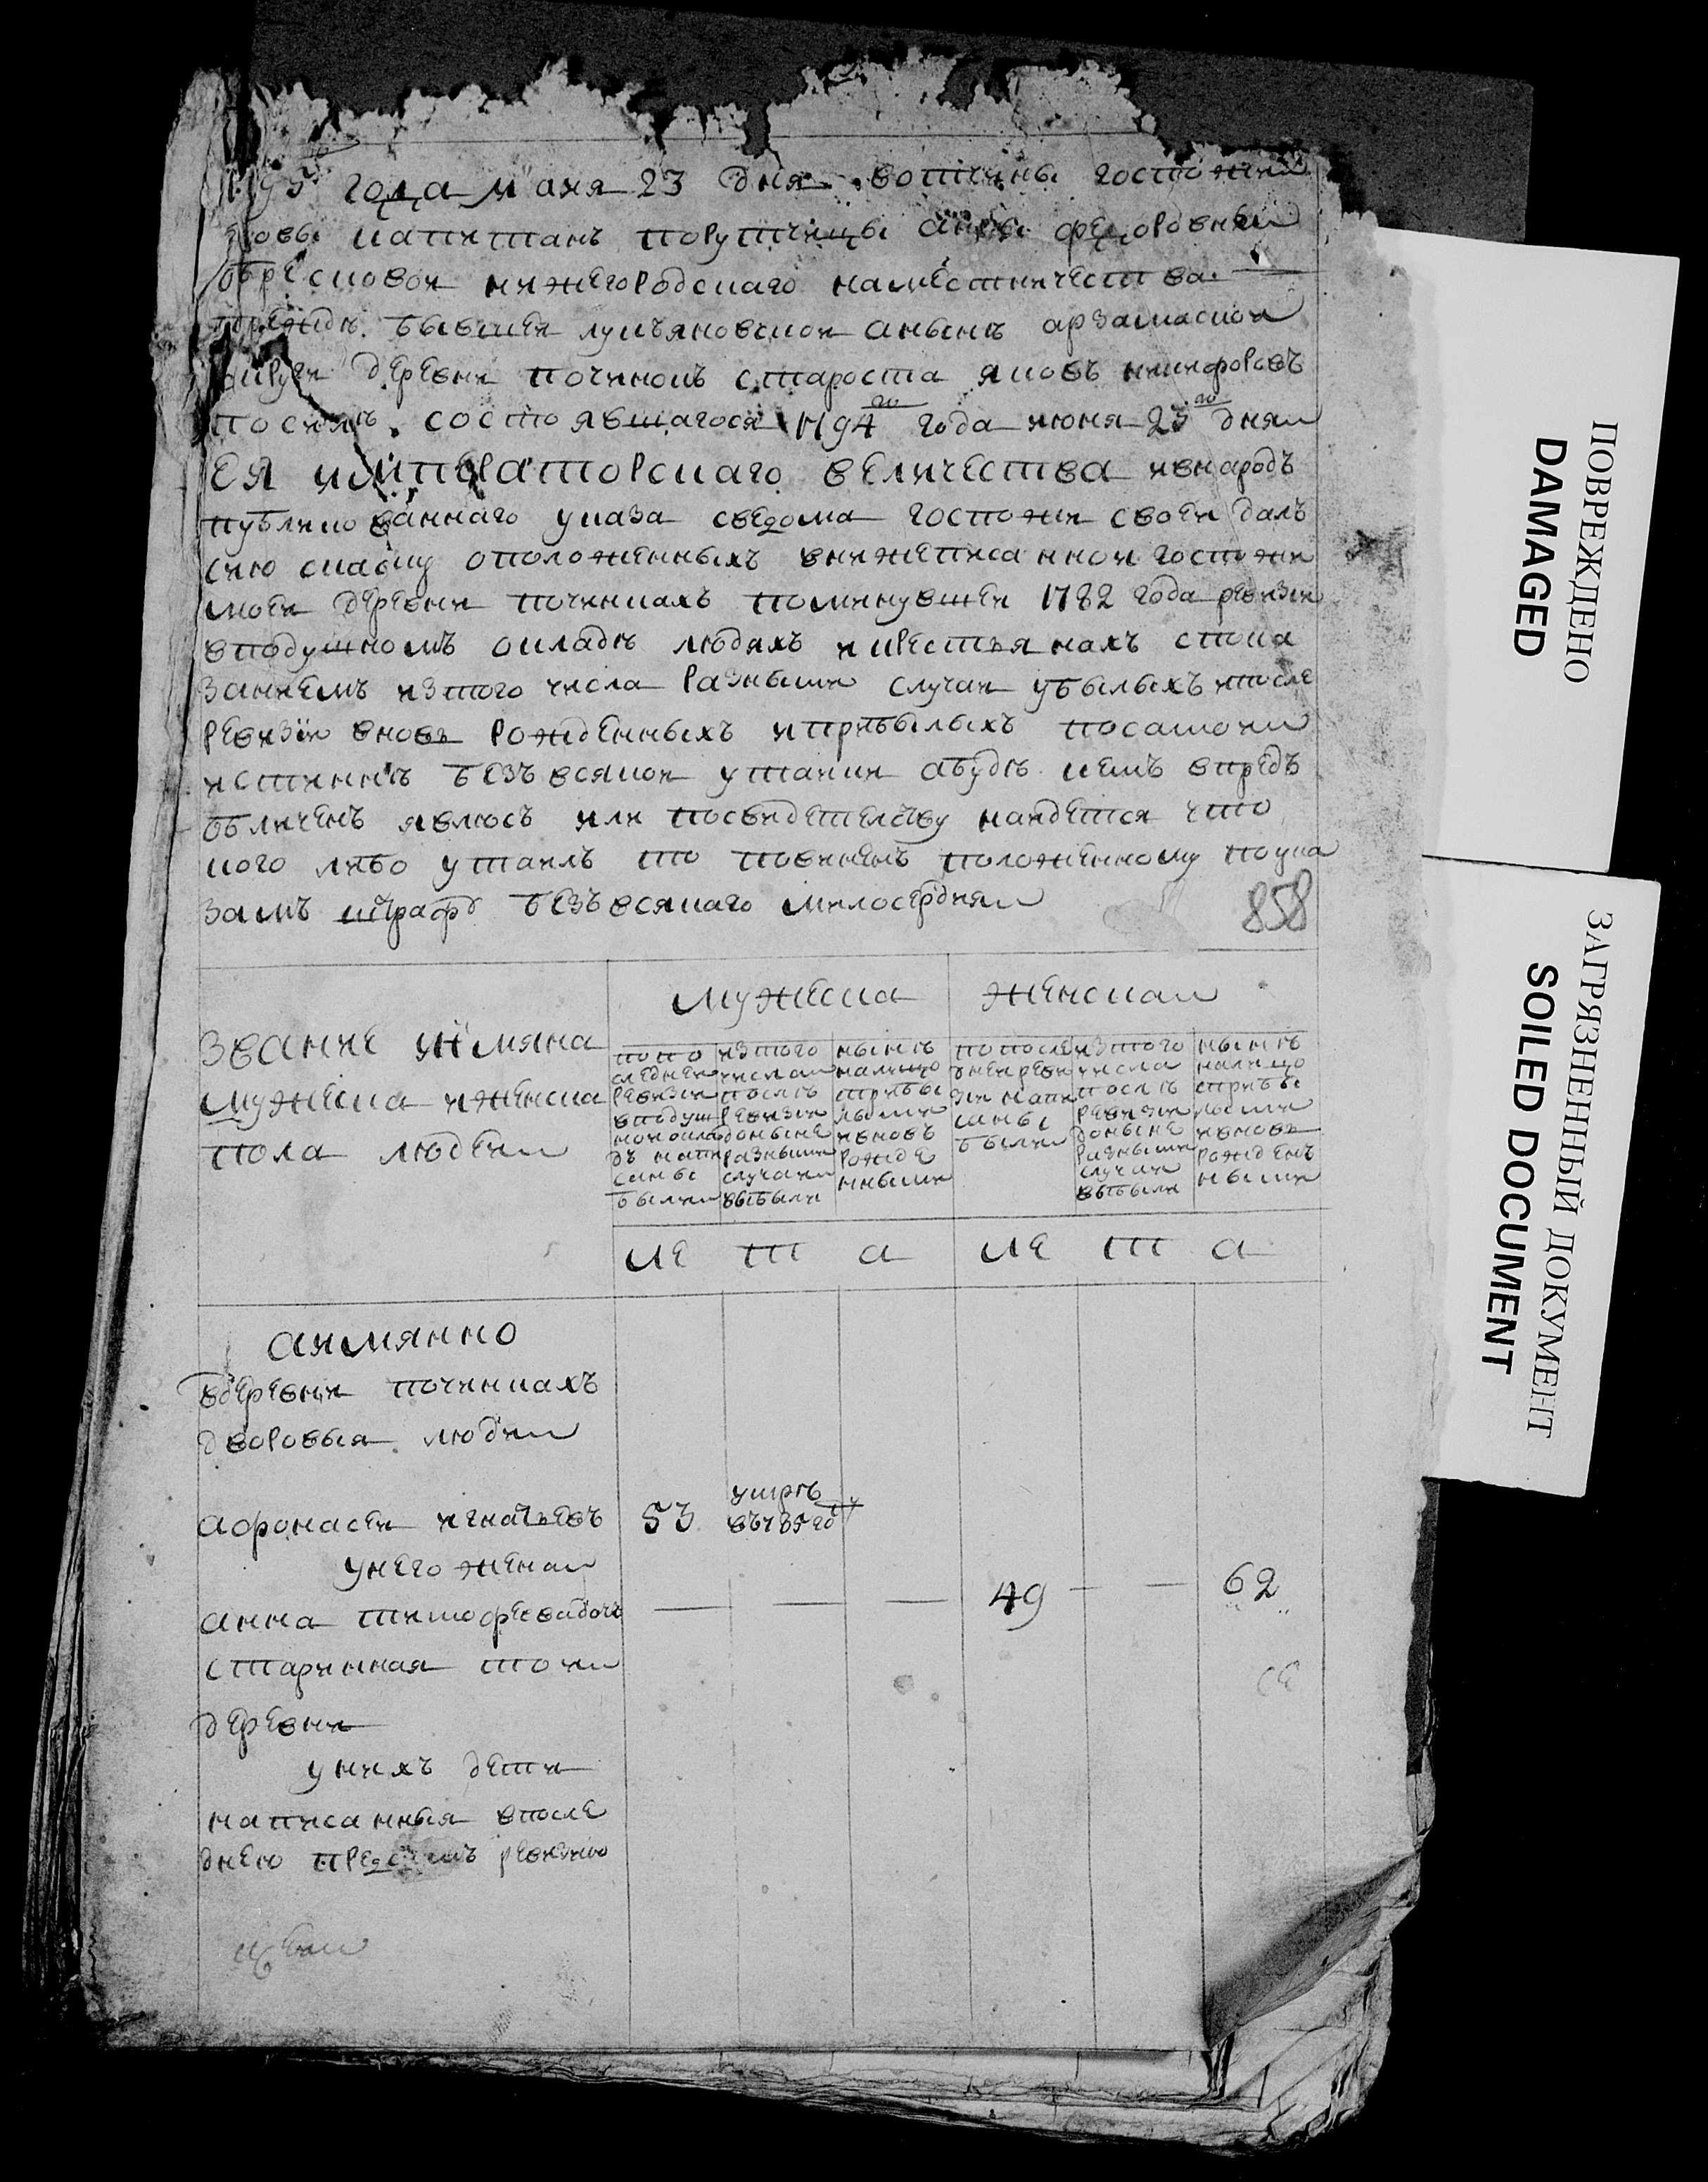 1795 года маия 23 дня вотчины госпожи
вдовы капитанъ порутчицы анны федоровны
обресковои нижегородскаго наместничества
прежде бывшеи лукъяновскои анынѣ арзамаскои
округи деревни починокъ староста яковъ никифоровъ
посилѣ состоявшагося 1794го года июня 23го дня
ея императорскаго величества ивнародъ
публикованнаго указа сведома госпожи своеи далъ
сию скаску оположенныхъ внижеписаннои госпожи
моеи деревни починкахъ поминувшеи 1782 года ревизии
вподушномъ окладѣ людяхъ икрестьянахъ спока
заниемъ изтого числа разными случаи убылыхъ ипосле
ревизии вновь рожденныхъ иприбылыхъ посамои
истиннѣ безъ всякои утаики абудѣ чемъ впредъ
обличенъ явлюсь или посвидетелству наидется что
кого либо утаилъ то повиненъ положенному поука
замъ штрафу безъ всякаго милосердия
858
мужеска женска
звание иимяна
мужеска иженска
пола людеи
попо
следнеи
ревизии
вподуш
номокла
дѣ напи
саны
были
изтого
числа
послѣ
ревизии
доныне
разными
случаи
выбыли
нынѣ
налицо
сприбы
лыми
ивновъ
рожде
нными
попосле
днеи реви
зии напи
саны
были
изтого
числа
послѣ
ревизии
доныне
разными
случаи
выбыли
нынѣ
налицо
сприбы
лыми
ивновь
рожденъ
ными
ле т а ле т а
аимянно
вдеревни починкахъ
дворовыя люди
афонасеи игнатьевъ 53 умрѣ
въ785году
унего жена
анна тимофеева дочь — — — 49 — — 62
старинная тои
деревни
унихъ дети
написанныя впосле
днею предсимъ ревизию
ПОВРЕЖДЕНО
DAMAGED
ЗАГРЯЗНЕННЫЙ ДОКУМЕНТ
SOILED DOCUMENT